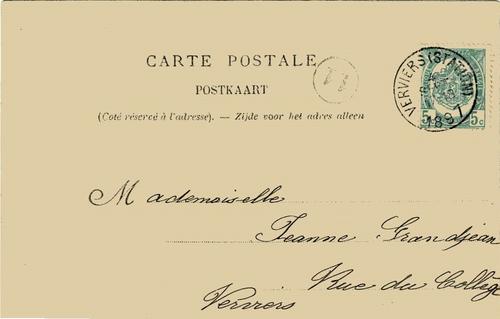 CARTE POSTALE
POSTKAART
(Coté réservé à l'adresse). — Zijde voor het adres alleen
VERVIERS (STATION)
1897
5c 5c
Mademoiselle
Jeanne Grandjean
Rue du Collège
Verviers